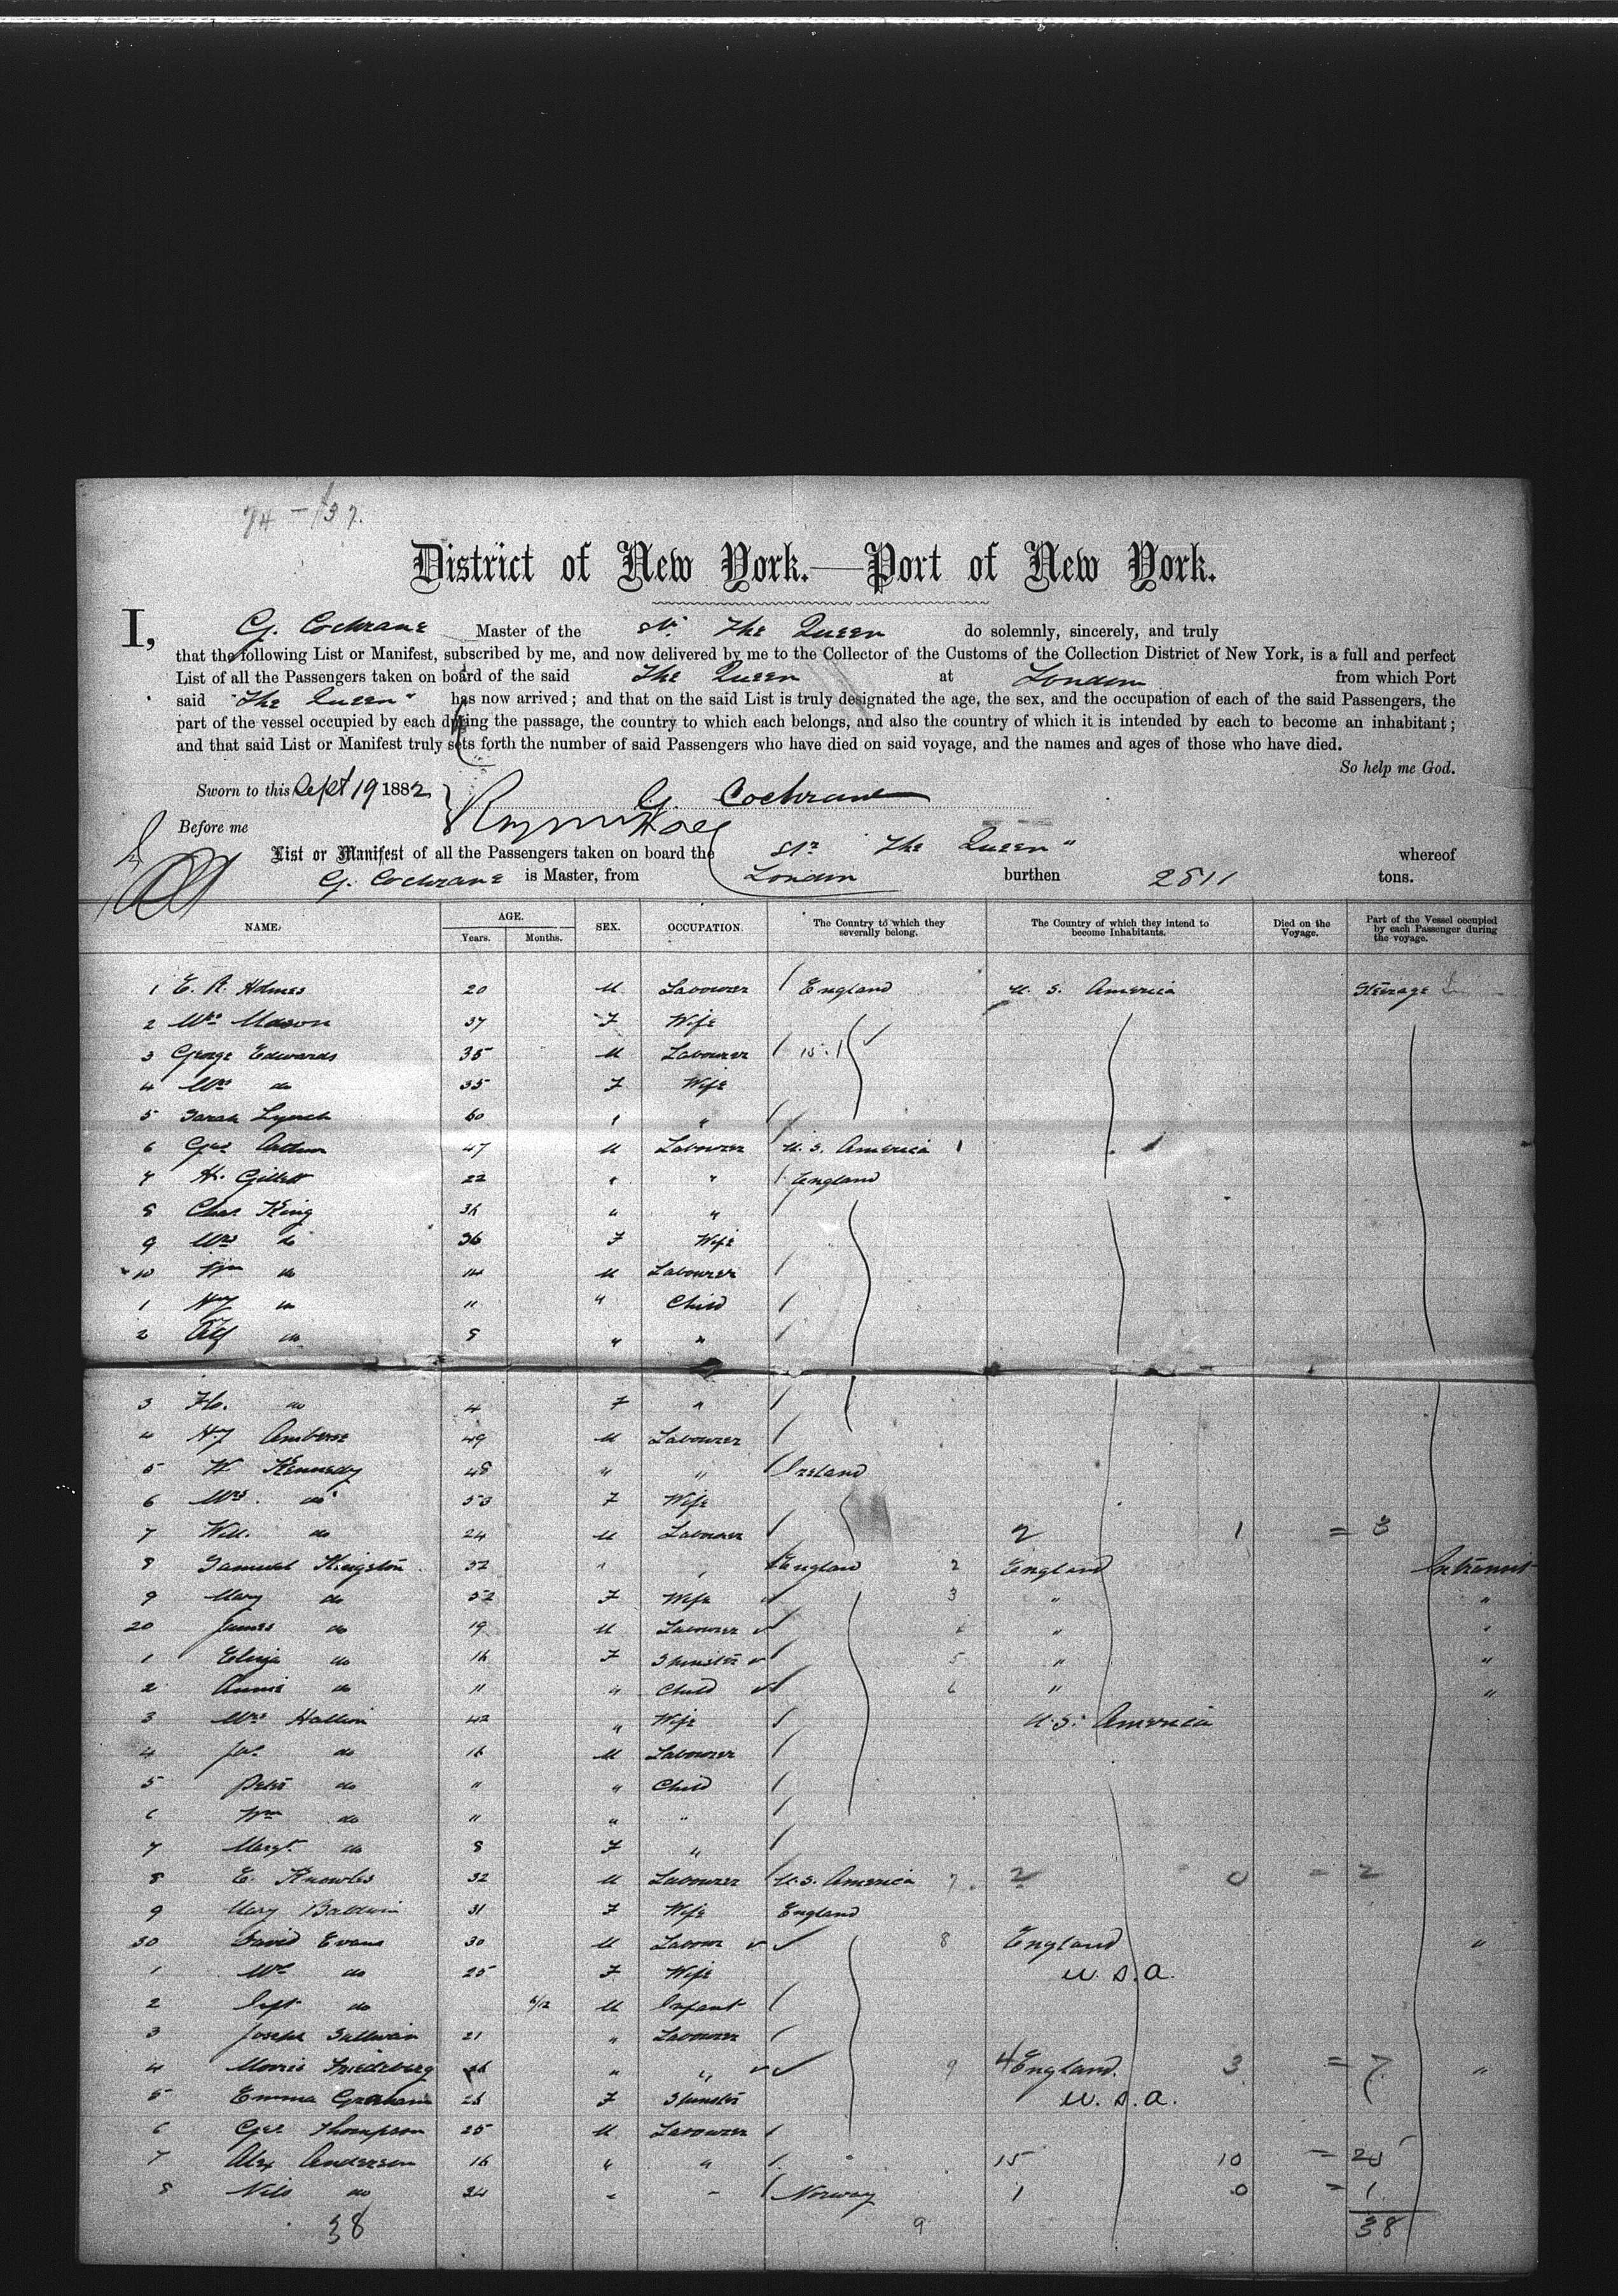 District of New York.—Port of New York.
I, G. Cochrane Master of the Str The Queen do solemnly, sincerely, and truly
that the following List or Manifest, subscribed by me, and now delivered by me to the Collector of the Customs of the Collection District of New York, is a full and perfect
List of all the Passengers taken on board of the said The Queen at London from which Port
said "The Queen" has now arrived; and that on the said List is truly designated the age, the sex, and the occupation of each of the said Passengers, the
part of the vessel occupied by each during the passage, the country to which each belongs, and also the country of which it is intended by each to become an inhabitant;
and that said List or Manifest truly sets forth the number of said Passengers who have died on said voyage, and the names and ages of those who have died.
So help me God.
Sworn to this Sept 19 1882 G. Cochrane
Before me
List or Manifest of all the Passengers taken on board the Str The Queen" whereof
G. Cochrane is Master, from London burthen 2811 tons.
NAME. AGE. Years. Months. SEX. OCCUPATION. The Country to which they severally belong. The Country of which they intend to become Inhabitants. Died on the Voyage. Part of the Vessel occupied by each Passenger during the voyage.
1 E. R. Holmes 20 M Labourer England U. S. America Steerage
2 Mrs Mason 37 F Wife
3 George Edwards 35 M Labourer
4 Mrs do 35 F Wife
5 Sarah Lynch 60 " "
6 Geo 47 M Labourer U. S. America 1
7 H. Gillett 22 " " England
8 Chas King 36 " "
9 Mrs do 36 F Wife
10 Wm do 14 M Labourer
1 Hy do 11 " Child
2 Alf do 8 " "
3 Flo. do 4 F "
4 Hy Ambrose 49 M Labourer
5 W Kennedy 48 " " Ireland
6 Mrs. do 53 F Wife
7 Will. do 24 M Labourer 2 1 = 3
8 Samuel Kingston 52 " " England 2 England Intransit
9 Mary do 52 F Wife 3 " "
20 James do 19 M Labourer " "
1 Eliza do 16 F Spinster 5 " "
2 Annie do 11 " Child 6 " "
3 Mrs Hallion 42 " Wife U. S. America
4 Jas. do 16 M Labourer
5 Peter do " " Child
6 Wm do 11 " "
7 Margt. do 8 F "
8 E. Knowles 32 M Labourer U. S. America 7 2 0 = 2
9 Mary Baldwin 31 F Wife England
30 David Evans 30 M Labour 8 England "
1 Mrs do 25 F Wife U. S. A.
2 Inft do 6/12 M Infant
3 Joseph Sullivan 21 " Labourer
4 Morris Friedeberg " " 9 4 England 3 = 7 "
5 Emma Graham F Spinster U. S. A.
6 Geo Thompson 25 M Labourer
7 Alex Anderson 16 " " 15 10 = 25
8 Nils do 34 " " Norway 1 0 = 1
38 9 38